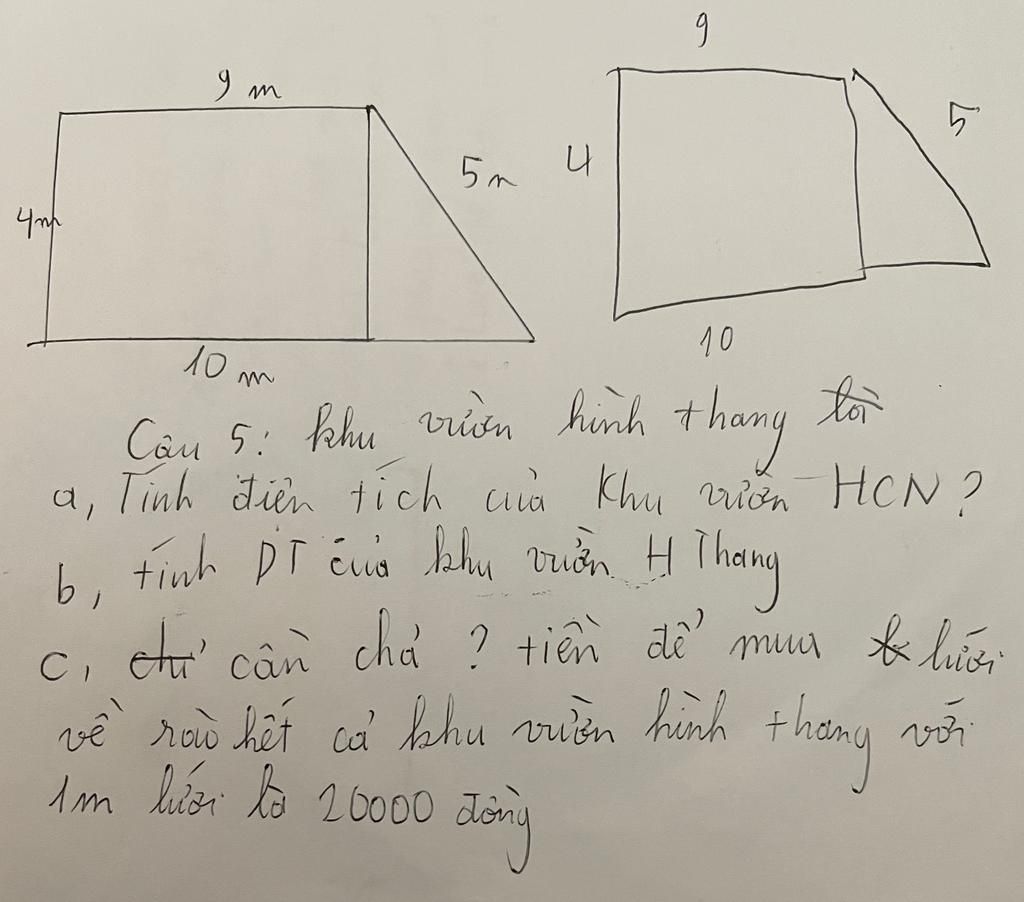 9 m
4m
5m
10 m
9
4
5
10
Câu 5: khu vườn hình thang là
a, Tính điện tích của khu vườn HCN?
b, tính DT của khu vườn H Thang
c, chi cần chả ? tiền để mua lưới
về rào hết cả khu vườn hình thang với
1m lưới là 20000 đồng